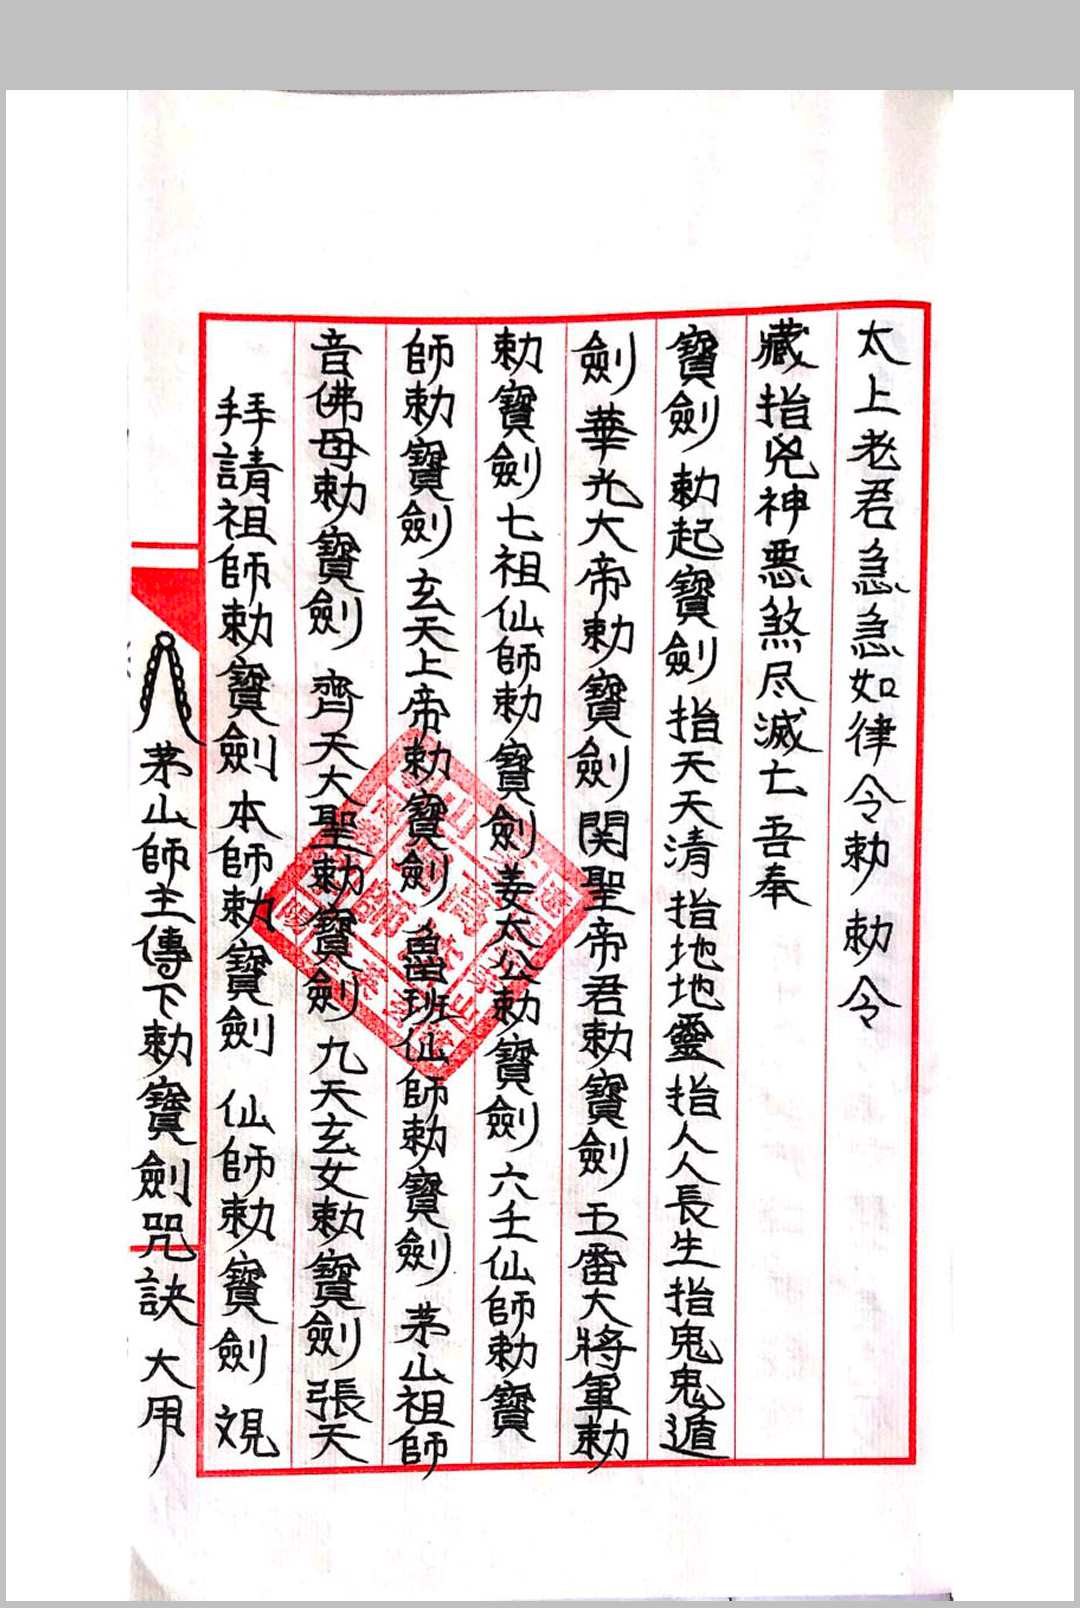 茅山師主傳下勅寶劍咒訣 大用
拜請祖師勅寶劍 本師勅寶劍 仙師勅寶劍 覌
音佛母勅寶劍 齊天大聖勅寶劍 九天玄女勅寶劍 張天
師勅寶劍 玄天上帝勅寶劍 魯班仙師勅寶劍 茅山祖師
勅寶劍七祖仙師勅寶劍姜太公勅寶劍 六壬仙師勅寶
劍 華光大帝勅寶劍関聖帝君勅寶劍 五雷大將軍勅
寶劍 勅起寶劍 指天天清 指地地靈 指人人長生 指鬼鬼遁
藏 指兇神悪煞尽滅亡 吾奉
太上老君急急如律令勅 勅令